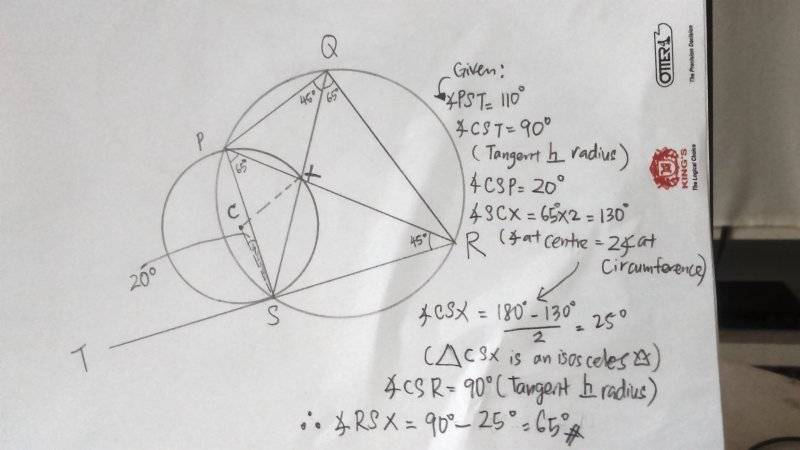 Q
45° 65°
P
65°
X
C
45°
R
20°
S
T
Given:
∡PST = 110°
∡CST = 90°
(Tangent h radius)
∡CSP = 20°
∡SCX = 65°×2 = 130°
(∡at centre = 2∡at
Circumference)
∡CSX = 180° - 130° / 2 = 25°
(△CSX is an isosceles △)
∡CSR = 90° (Tangent h radius)
∴ ∡RSX = 90° - 25° = 65° #
OTTER-1
The Precision Decision
KING'S
The Logical Choice